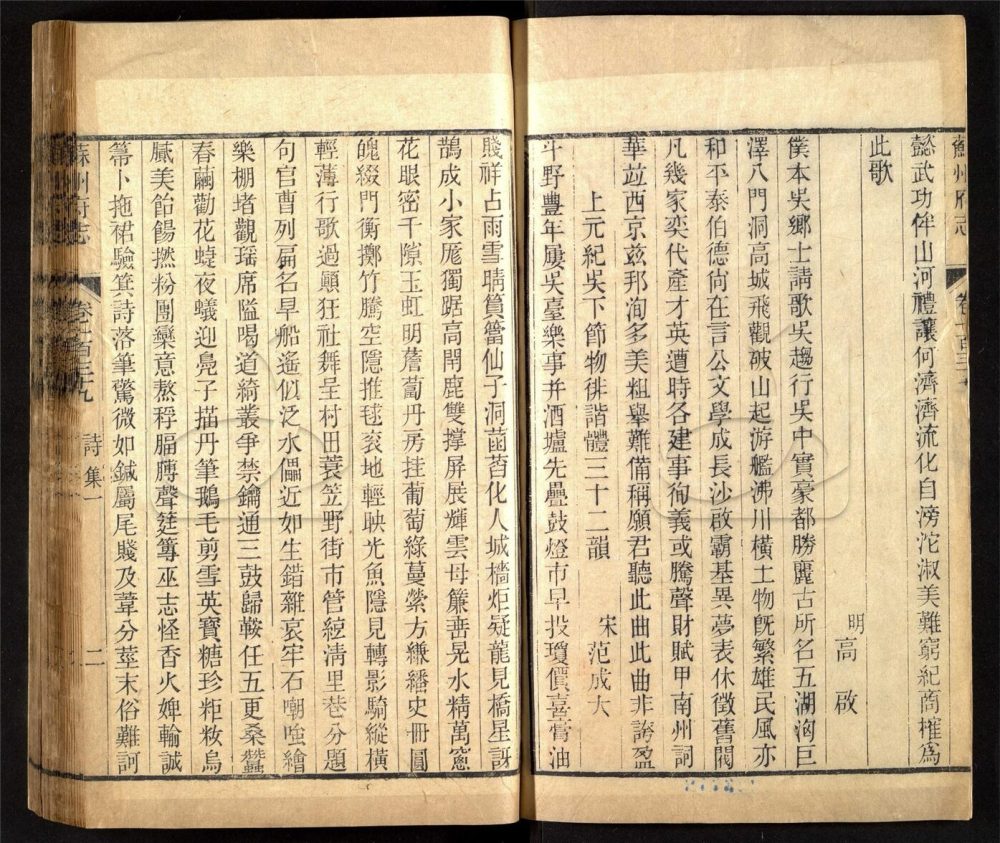 蘇州府志
卷一百三十九
懿武功侔山河禮讓何濟濟流化自滂沱淑美難窮紀商榷為
此歌
明高啟
僕本吳鄉士請歌吳趨行吳中實豪都勝麗古所名五湖洶巨
澤八門洞高城飛觀破山起游艦沸川橫土物既繁雄民風亦
和平泰伯德尚在言公文學成長沙啟霸基異夢表休徵舊閥
凡幾家奕代產才英遭時各建事徇義或騰聲財賦甲南州詞
華並西京茲邦洵多美粗舉難備稱願君聽此曲此曲非誇盈
上元紀吳下節物徘諧體三十二韻
宋范成大
斗野豐年屢吳臺樂事并酒壚先疊鼓燈市早投瓊價喜膏油
賤祥占雨雪晴篔簹仙子洞菡萏化人城檣炬疑龍見橋星訝
鵲成小家厖獨踞高閈鹿雙撐屏展輝雲母簾垂晃水精萬窗
花眼密千隙玉虹明薝蔔丹房挂葡萄綠蔓縈方縑繙史冊圓
魄綴門衡擲竹騰空隱推毬袞地輕映光魚隱見轉影騎縱橫
輕薄行歌過顛狂社舞呈村田蓑笠野街市管絃清里巷分題
句官曹列扁名旱船遙似泛水儡近如生錯雜哀牢石嘲嗤繪
樂棚堵觀瑤席隘喝道綺叢爭禁鑰通三鼓歸鞍任五更桑蠶
春繭勸花蜨夜蛾迎鳧子描丹筆鵝毛剪雪英寶糖珍粔籹烏
膩美飴餳撚粉團欒意熬稃腷膊聲筳篿巫志怪香火婢輸誠
箒卜拖裙驗箕詩落筆驚微如鍼屬尾賤及葦分莖末俗難訶
蘇州府志
卷一百三十九
詩集一
二